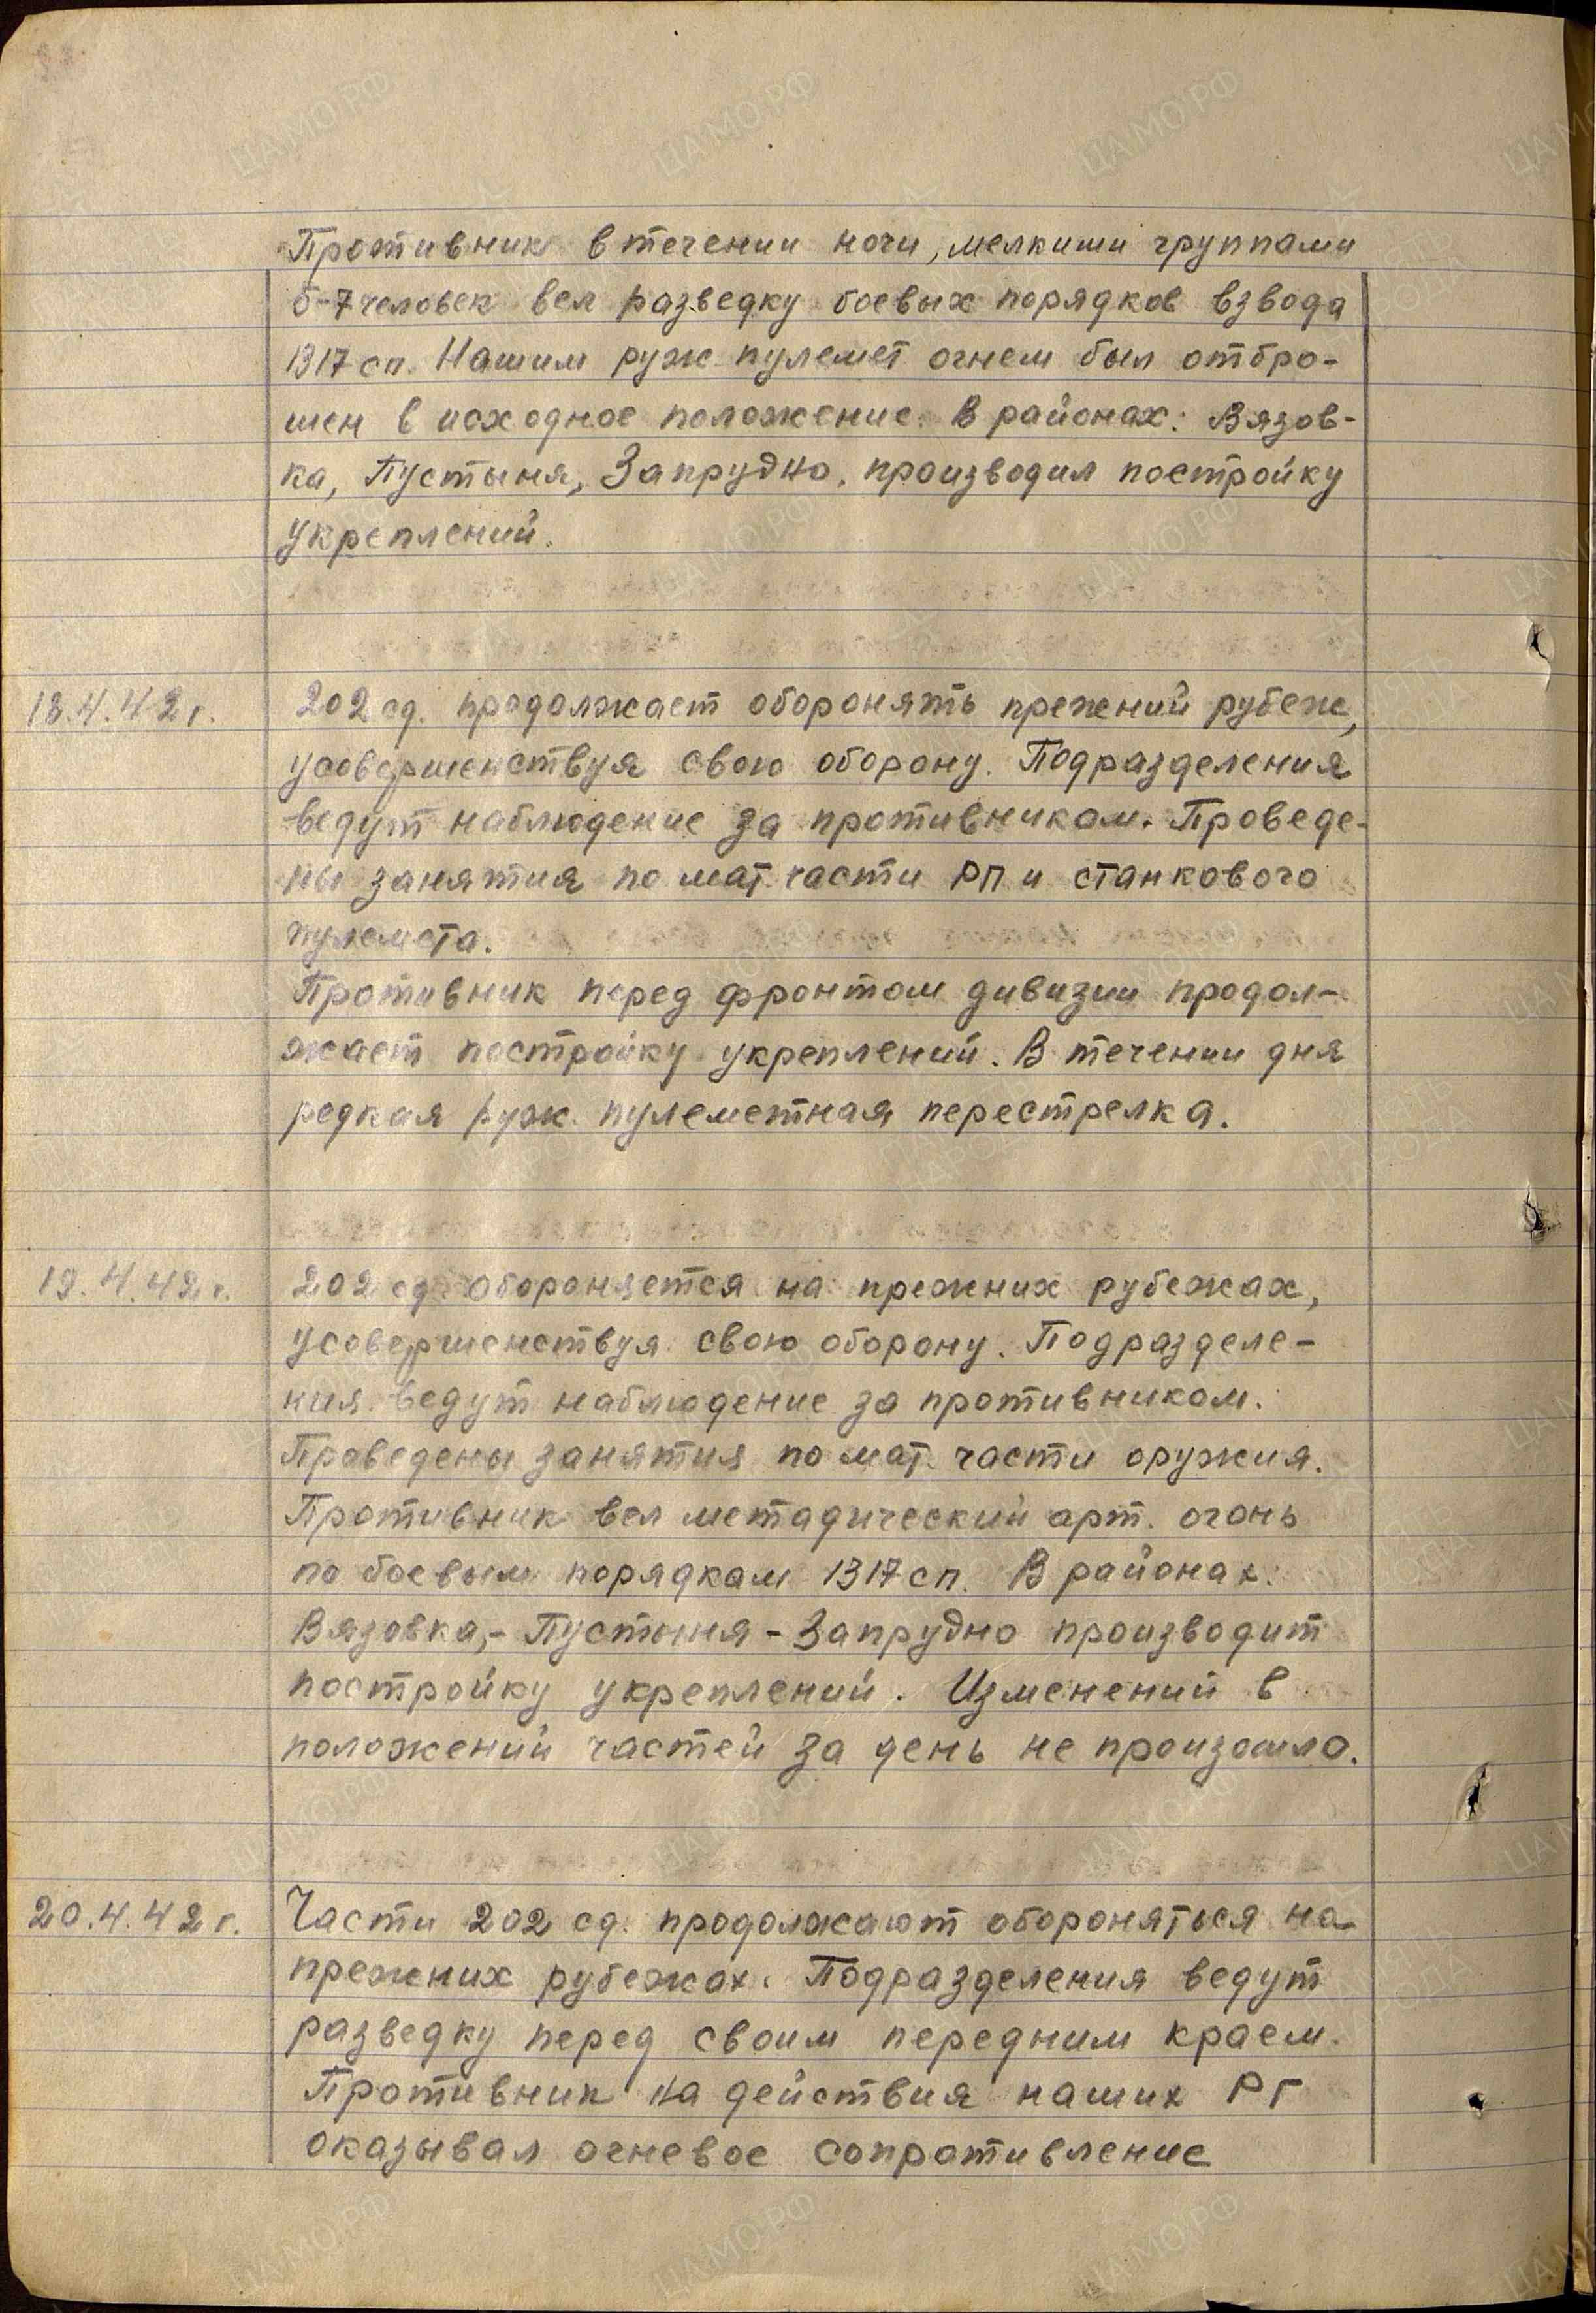 Противник в течении ночи, мелкими группами
5-7 человек вел разведку боевых порядков взвода
1317 сп. Нашим руж. пулемет огнем был отбро-
шен в исходное положение. В районах: Вязов-
ка, Пустыня, Запрудно, производил постройку
укреплений.
18.4.42 г.
202 сд. продолжает оборонять прежний рубеж,
усовершенствуя свою оборону. Подразделения
ведут наблюдение за противником. Проведе-
ны занятия по мат. части РП и станкового
пулемета.
Противник перед фронтом дивизии продол-
жает постройку укреплений. В течении дня
редкая руж. пулеметная перестрелка.
19.4.42 г.
202 сд обороняется на прежних рубежах,
усовершенствуя свою оборону. Подразделе-
ния ведут наблюдение за противником.
Проведены занятия по мат. части оружия.
Противник вел метадический арт. огонь
по боевым порядкам 1317 сп. В районах:
Вязовка,- Пустыня - Запрудно производит
постройку укреплений. Изменений в
положений частей за день не произошло.
20.4.42 г.
Части 202 сд. продолжают обороняться на
прежних рубежах. Подразделения ведут
разведку перед своим передним краем.
Противник на действия наших РГ
оказывал огневое сопротивление
ЦАМО.РФ
ПАМЯТЬ НАРОДА